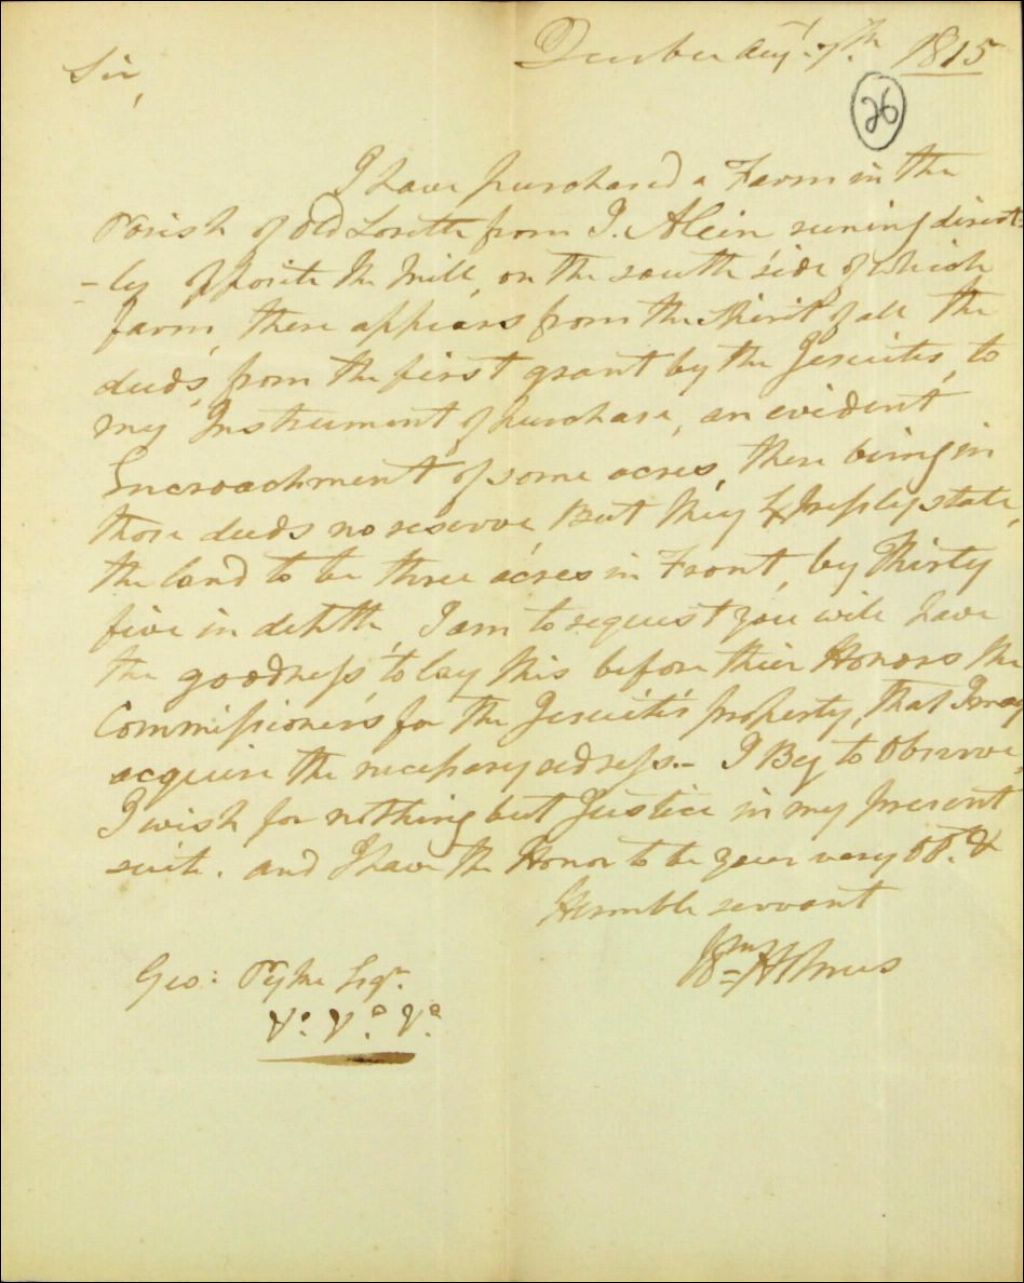 Quebec Augt. 7th 1815
Sir,
26
I have purchased a Farm in the
Parish of Old Lorette from J. Alein, runing direct
-ly opposite the Mill, on the south side of which
farm, there appears from the spirit of all the
deeds, from the first grant by the Jesuites, to
my Instrument of purchase, an evident
Encroachment of some acres, there being in
those deeds no reserve, But they Expressly state,
the land to be three acres in Front, by thirty
five in depth, I am to request you will have
the goodness, to lay this before their Honors the
Commissioners for the Jesuite's property, that I may
acquire the necessary redress.- I Beg to Observe,
I wish for nothing but Justice in my present
suit. and I have the Honor to be your very Obt. &
Humble servant
Wm Holmes
Geo: Pyke Esqr.
&c. &c. &c.